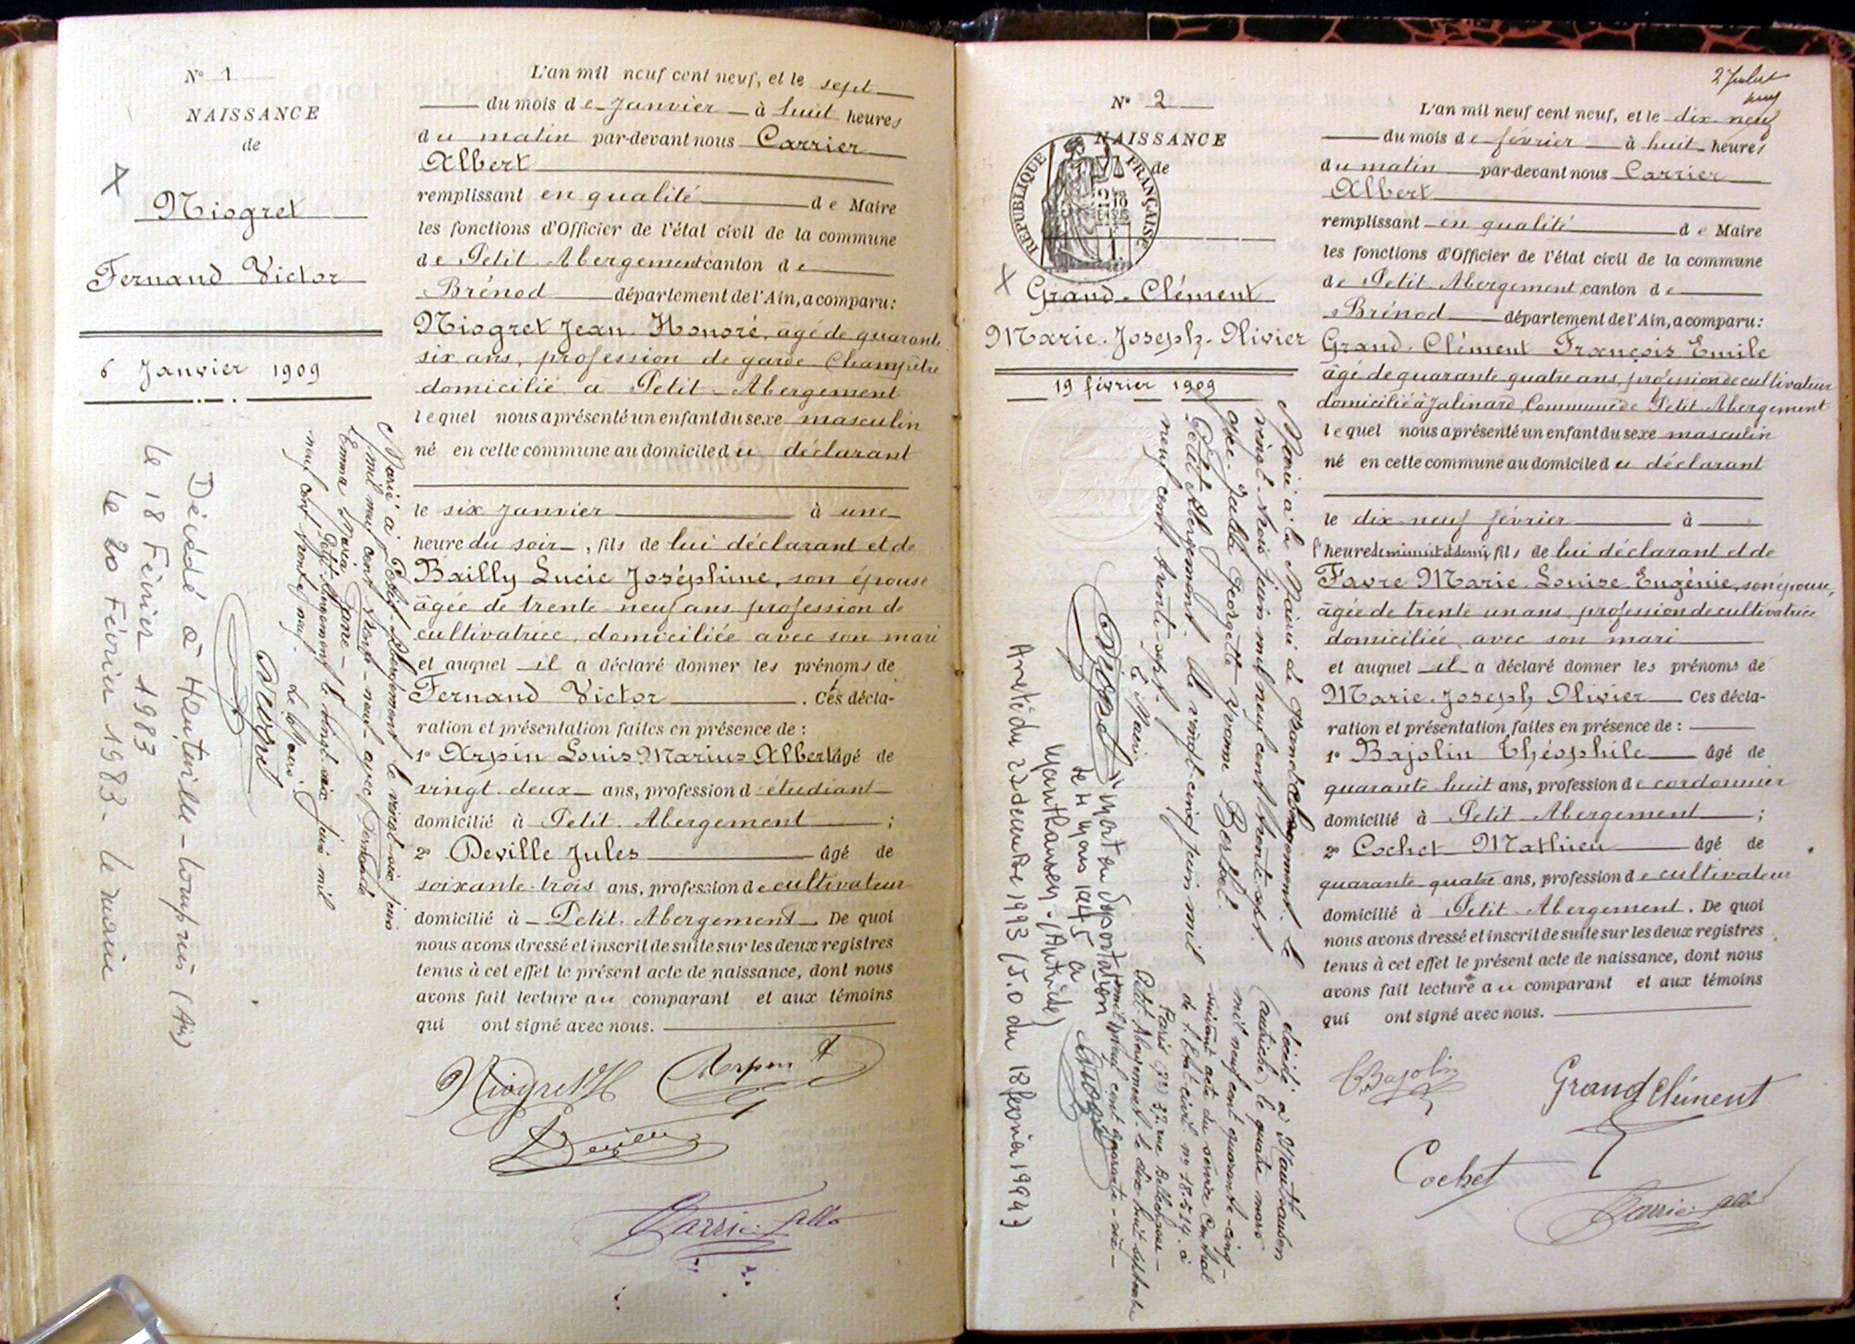 N° 1
NAISSANCE
de
Niogret
Fernand Victor
6 Janvier 1909
Marié à Petit-Abergement le vingt-six juin
mil neuf cent trente-neuf avec Fernande
Emma Maria Jane
Petit-Abergement le vingt-six juin mil
neuf cent trente neuf.
Le Maire
Décédé à Hauteville-Lompnes (Ain)
le 18 Février 1983
le 20 Février 1983 - le maire
L'an mil neuf cent neuf, et le sept
du mois de Janvier à huit heures
du matin par-devant nous Carrier
Albert
remplissant en qualité de Maire
les fonctions d'Officier de l'état civil de la commune
de Petit-Abergement canton de
Brénod département de l'Ain, a comparu:
Niogret Jean Honoré, âgé de quarante
six ans, profession de garde Champêtre
domicilié à Petit-Abergement
lequel nous a présenté un enfant du sexe masculin
né en cette commune au domicile du déclarant
le six Janvier à une
heure du soir, fils de lui déclarant et de
Bailly Lucie Joséphine, son épouse
âgée de trente-neuf ans profession de
cultivatrice, domiciliée avec son mari
et auquel il a déclaré donner les prénoms de
Fernand Victor. Ces décla-
ration et présentation faites en présence de :
1° Arpin Louis Marius Albert âgé de
vingt-deux ans, profession d'étudiant
domicilié à Petit-Abergement ;
2° Deville Jules âgé de
soixante-trois ans, profession de cultivateur
domicilié à Petit-Abergement. De quoi
nous avons dressé et inscrit de suite sur les deux registres
tenus à cet effet le présent acte de naissance, dont nous
avons fait lecture au comparant et aux témoins
qui ont signé avec nous.
Niogret JH
Arpin A
Deville
Carrier Alb
N° 2
NAISSANCE
de
RÉPUBLIQUE FRANÇAISE
Grand-Clément
Marie-Joseph-Olivier
19 février 1909
Marié à la Mairie de Grand Abergement le
vingt-trois juin mil neuf cent trente sept
avec Julia Georgette Yvonne Berthet.
Petit Abergement le vingt-cinq juin mil
neuf cent trente-sept.
Le Maire
"Mort en Déportation
le 4 mars 1945 à
Mauthausen (Autriche)
Arrêté du 22 décembre 1993 (J.O du 18 février 1994)
décédé à Mauthausen
(Autriche) le quatre mars
mil neuf cent quarante-cinq
suivant acte du service Central
de l'Etat civil n° 18.514. à
Paris 37 rue Bellechasse
Petit-Abergement le dix huit septembre
mil neuf cent quarante-six
2 Juillet
L'an mil neuf cent neuf, et le dix-neuf
du mois de février à huit heures
du matin par-devant nous Carrier
Albert
remplissant en qualité de Maire
les fonctions d'Officier de l'état civil de la commune
de Petit-Abergement canton de
Brénod département de l'Ain, a comparu:
Grand-Clément François Emile
âgé de quarante quatre ans, profession de cultivateur
domicilié à Jalinard, Commune de Petit-Abergement
lequel nous a présenté un enfant du sexe masculin
né en cette commune au domicile du déclarant
le dix-neuf février à
l'heure de minuit et demi, fils de lui déclarant et de
Favre Marie Louise Eugénie, son épouse,
âgée de trente un ans, profession de cultivatrice
domiciliée avec son mari
et auquel il a déclaré donner les prénoms de
Marie-Joseph Olivier Ces décla-
ration et présentation faites en présence de :
1° Bajolin Théophile âgé de
quarante-huit ans, profession de cordonnier
domicilié à Petit-Abergement ;
2° Cochet Mathieu âgé de
quarante-quatre ans, profession de cultivateur
domicilié à Petit-Abergement. De quoi
nous avons dressé et inscrit de suite sur les deux registres
tenus à cet effet le présent acte de naissance, dont nous
avons fait lecture au comparant et aux témoins
qui ont signé avec nous.
Bajolin
Grand Clément
Cochet
Carrier Alb